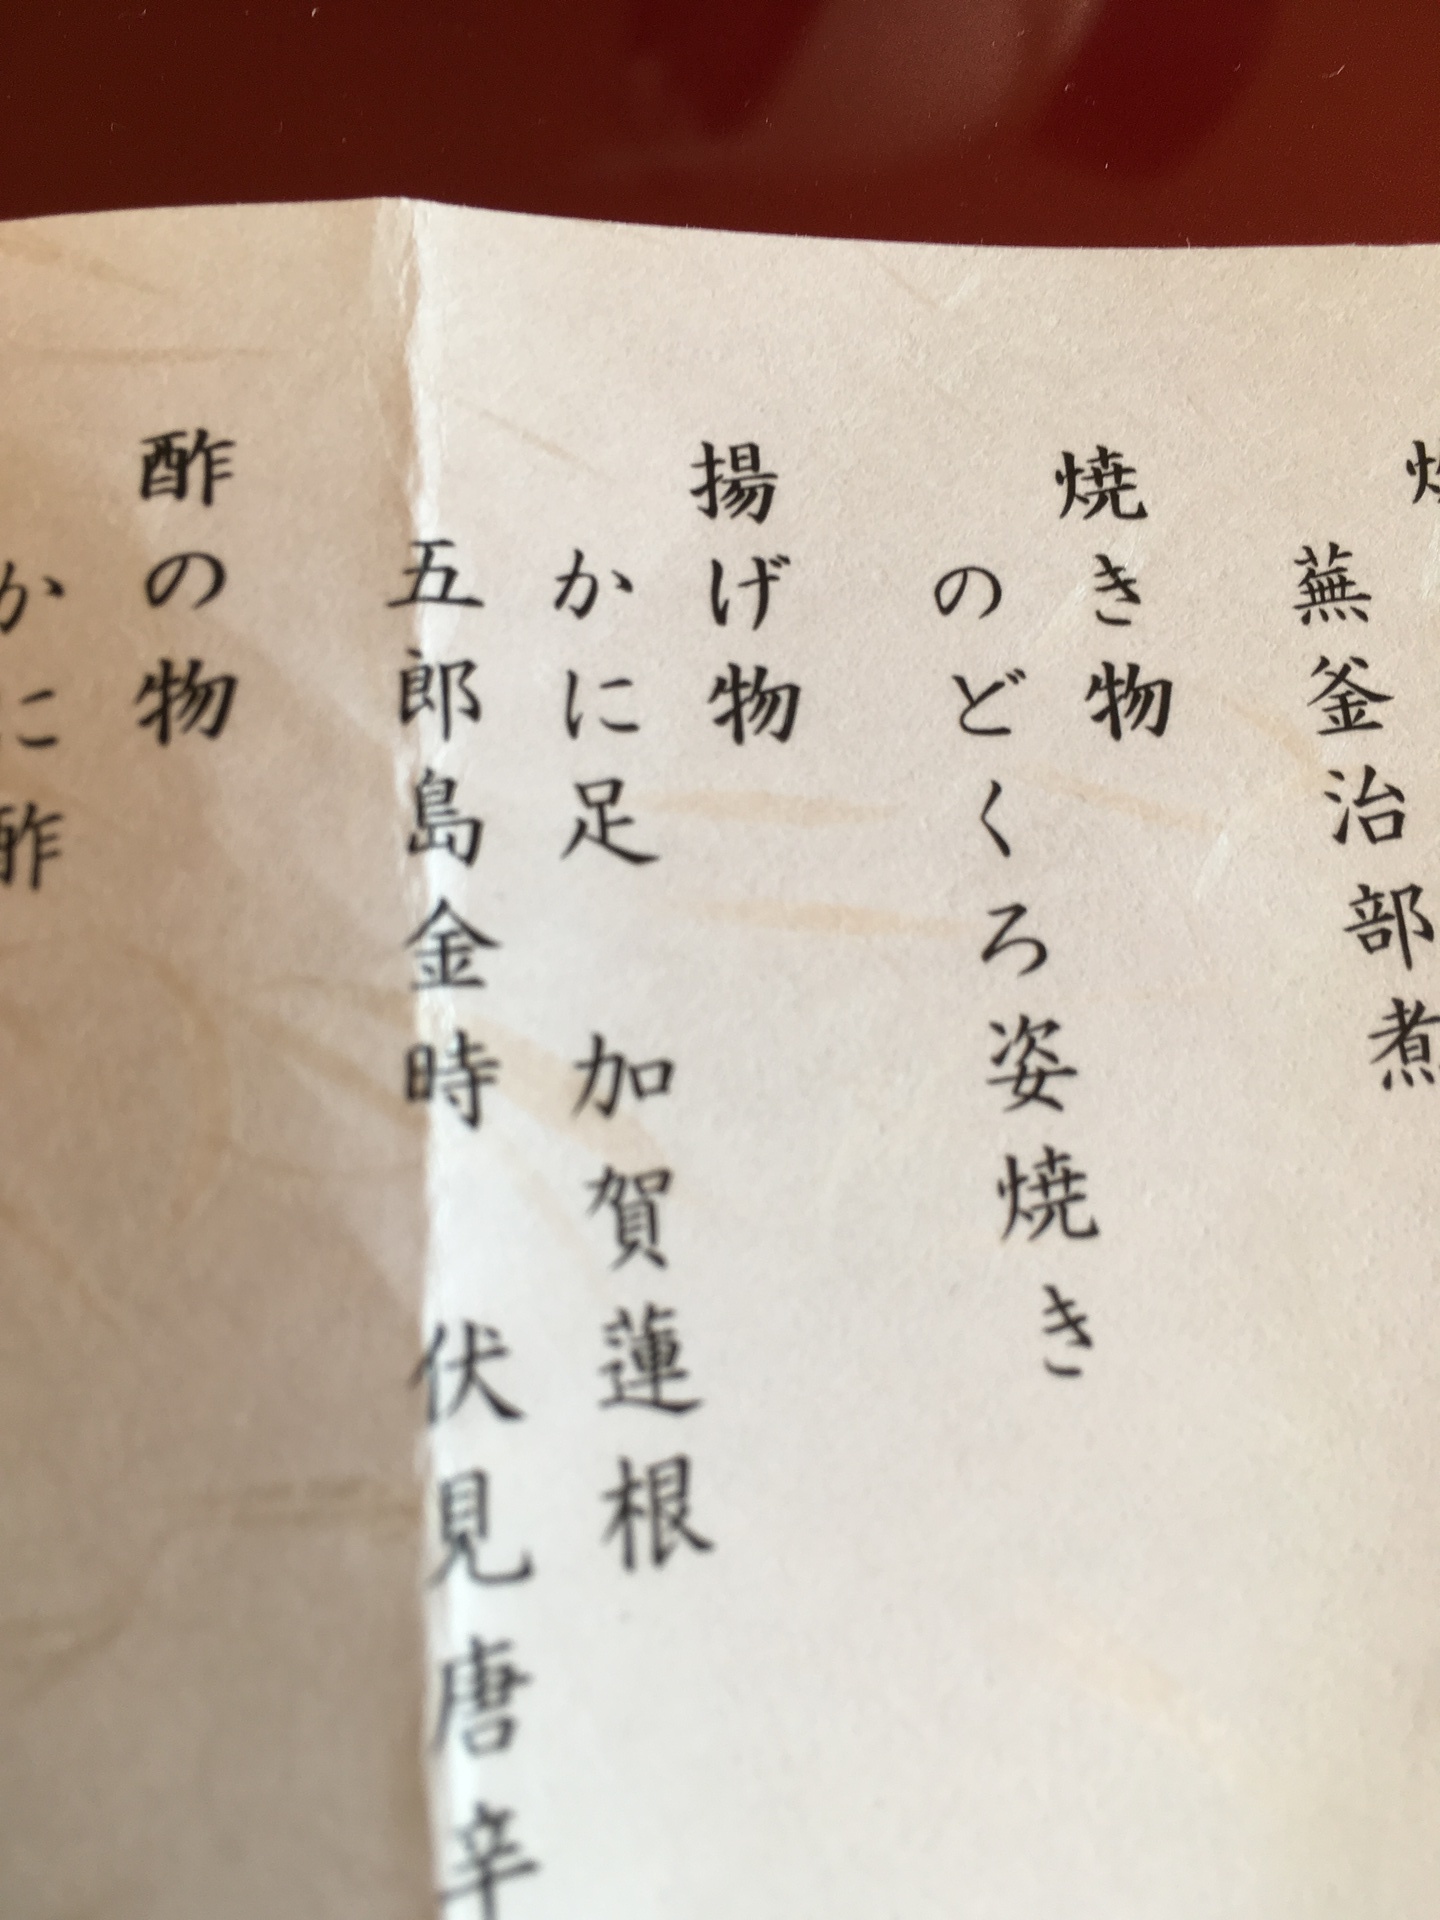 蕪釜治部煮
焼き物
のどくろ姿焼き
揚げ物
かに足　加賀蓮根
五郎島金時　伏見唐辛
酢の物
かに酢